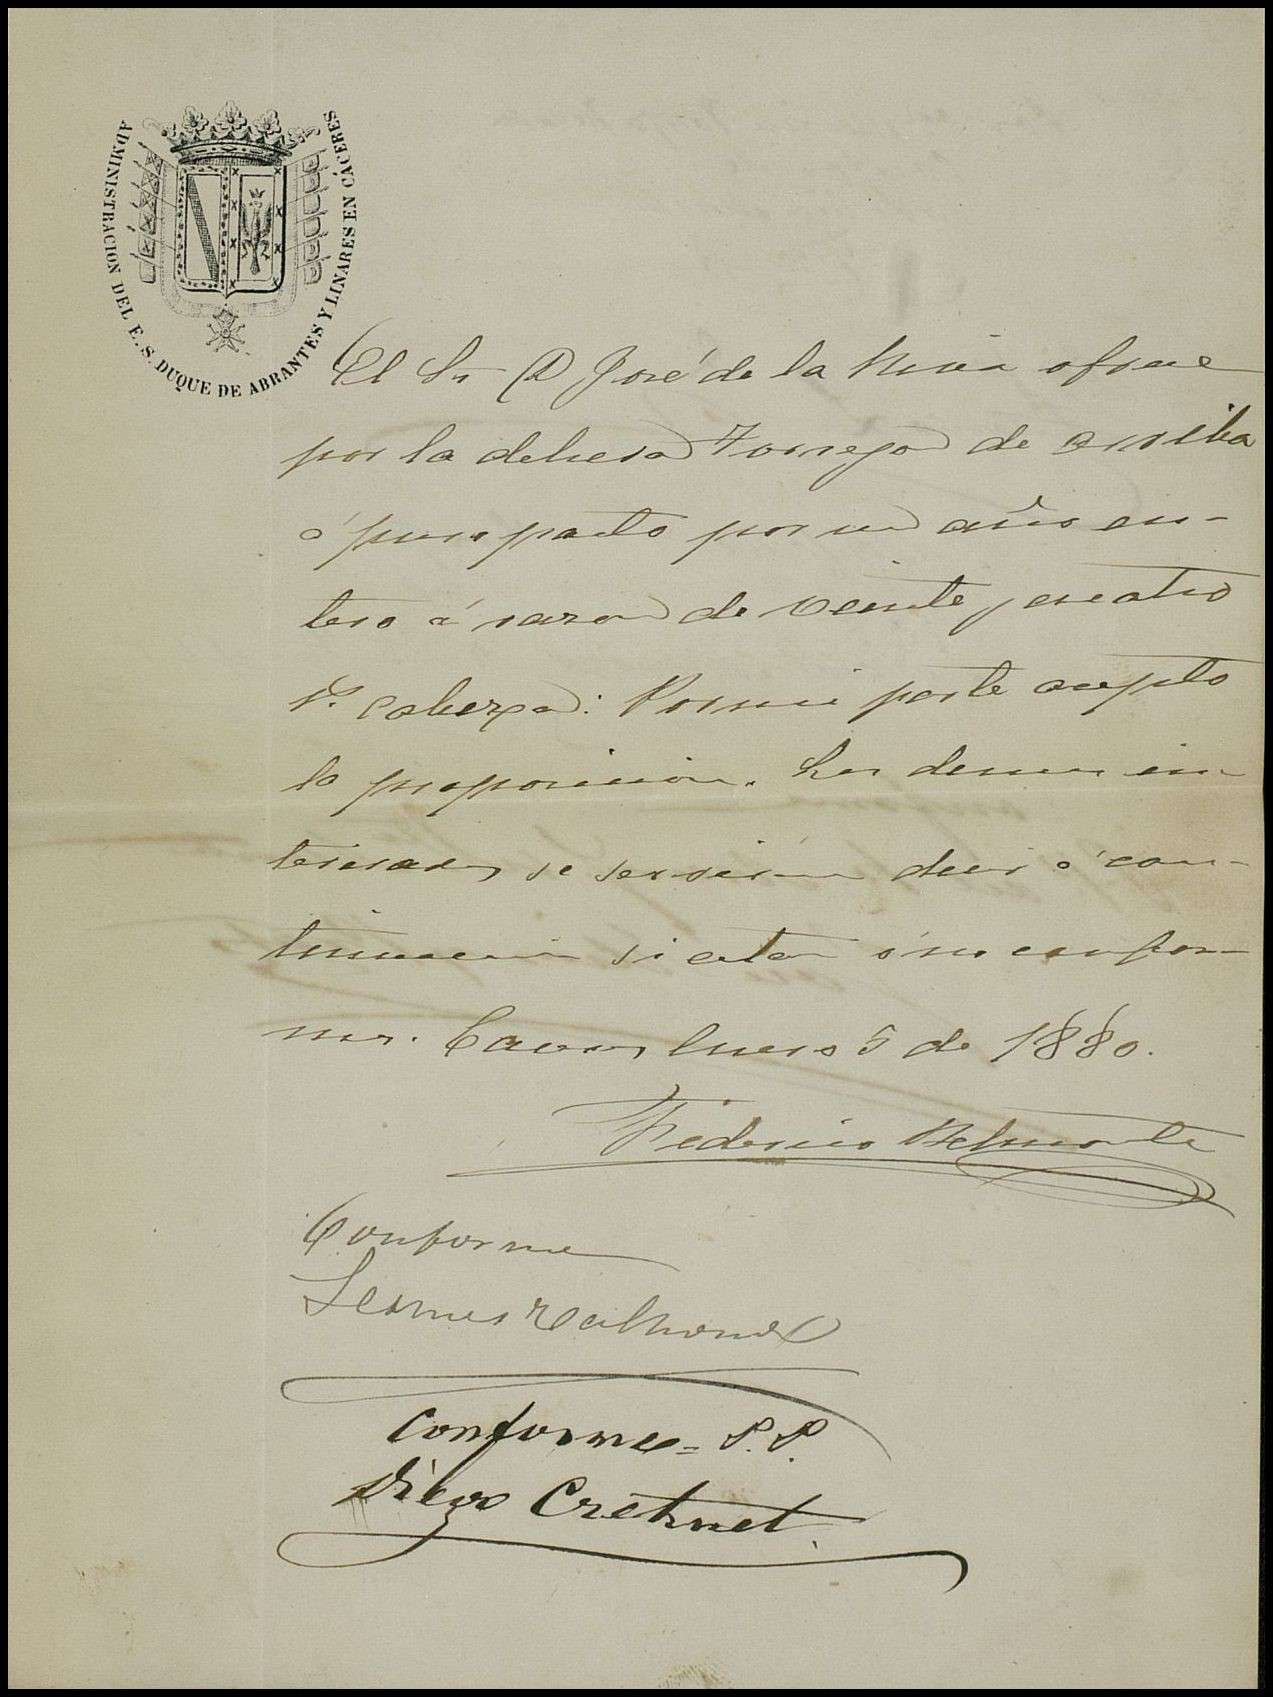 ADMINISTRACION DEL E. S. DUQUE DE ABRANTES Y LINARES EN CÁCERES
El Sr D José de la Riva ofrece
por la dehesa Torrejon de arriba
á puro pasto por un año en-
tero á razon de veinte y cuatro
rs. cabeza: Por mi parte acepto
la proposicion. Los demas in-
teresados se serviran decir á con-
tinuacion si estan ó no confor-
mes. Caceres Enero 5 de 1880.
Federico Belmonte
Conforme
Conforme = P. P.
Diego Crehuet